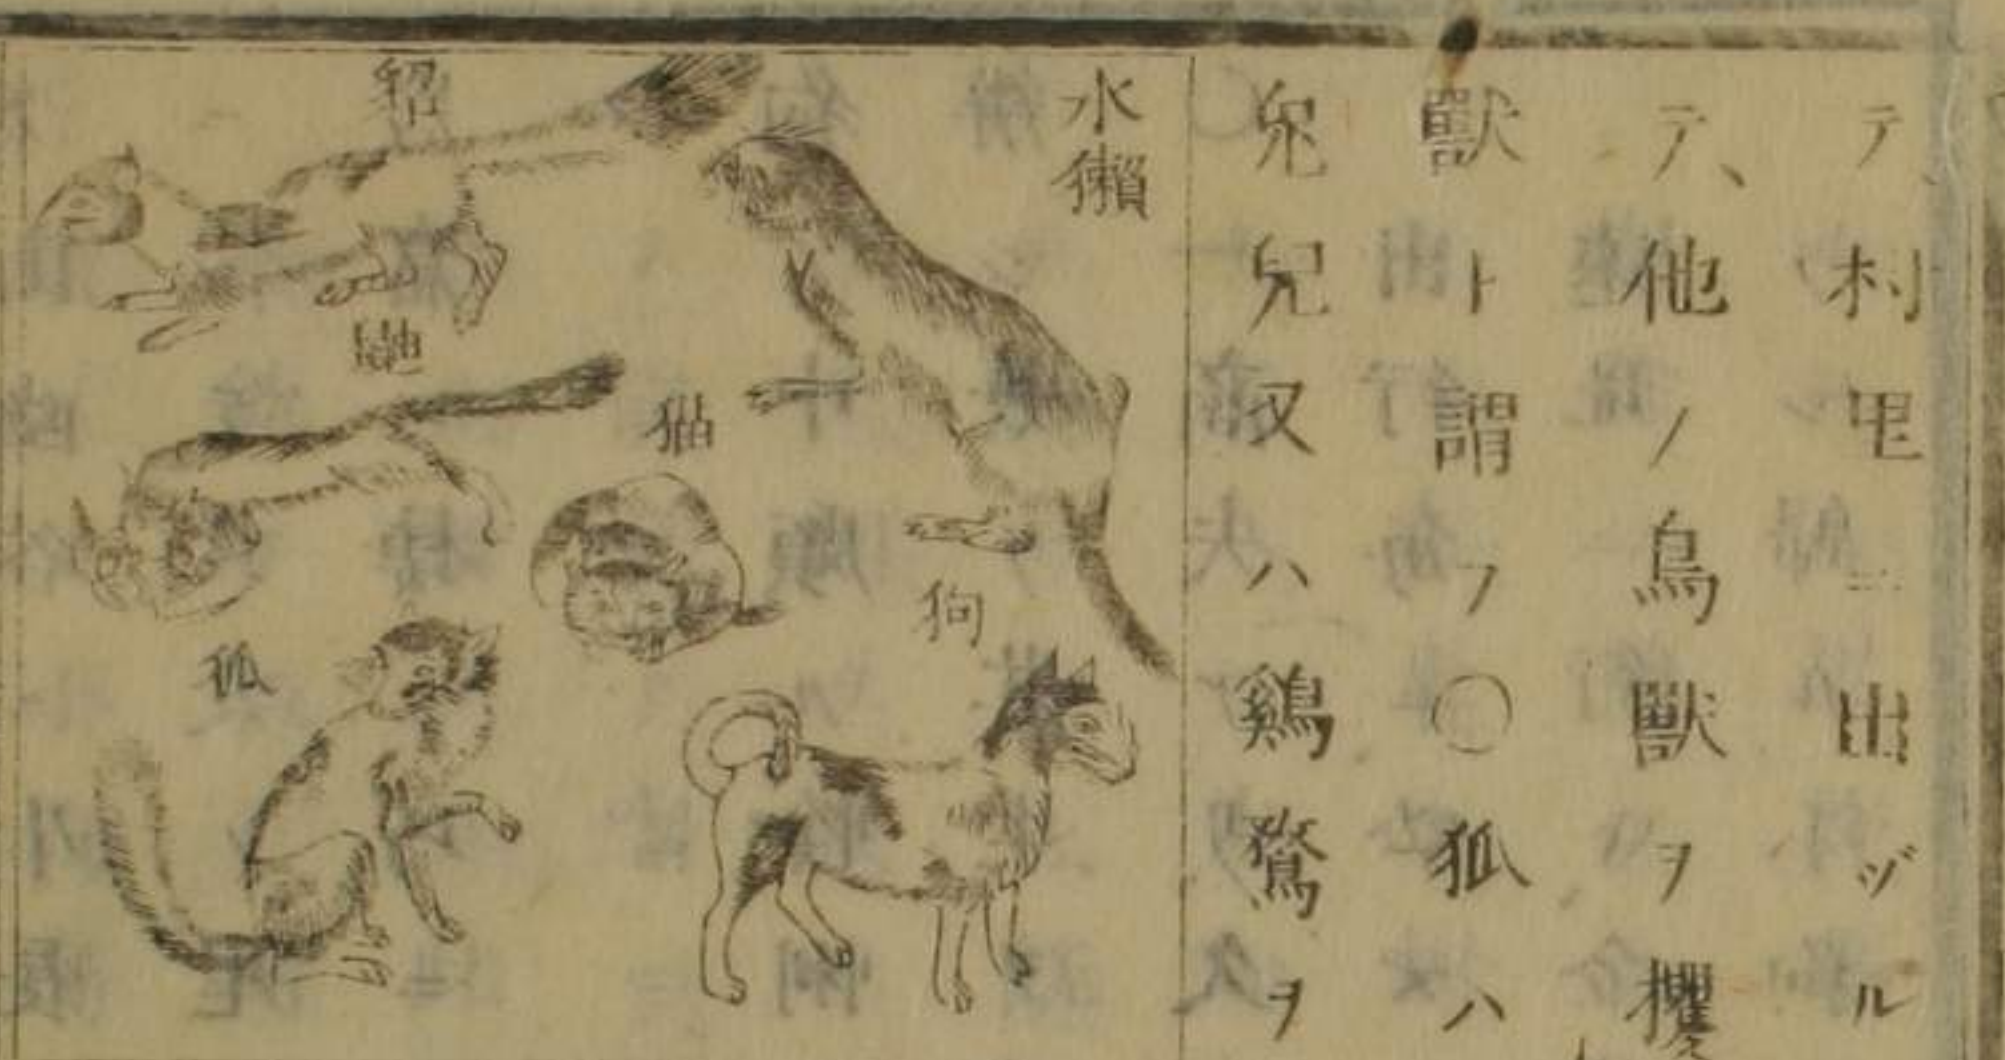 テ、村ニ出ヅル
テ、他ノ鳥獸ヲ攫
獸ト謂フ〇狐ハ
兔兒又ハ鷄鶩ヲ
水獺
貂
鼬
猫
狗
狐